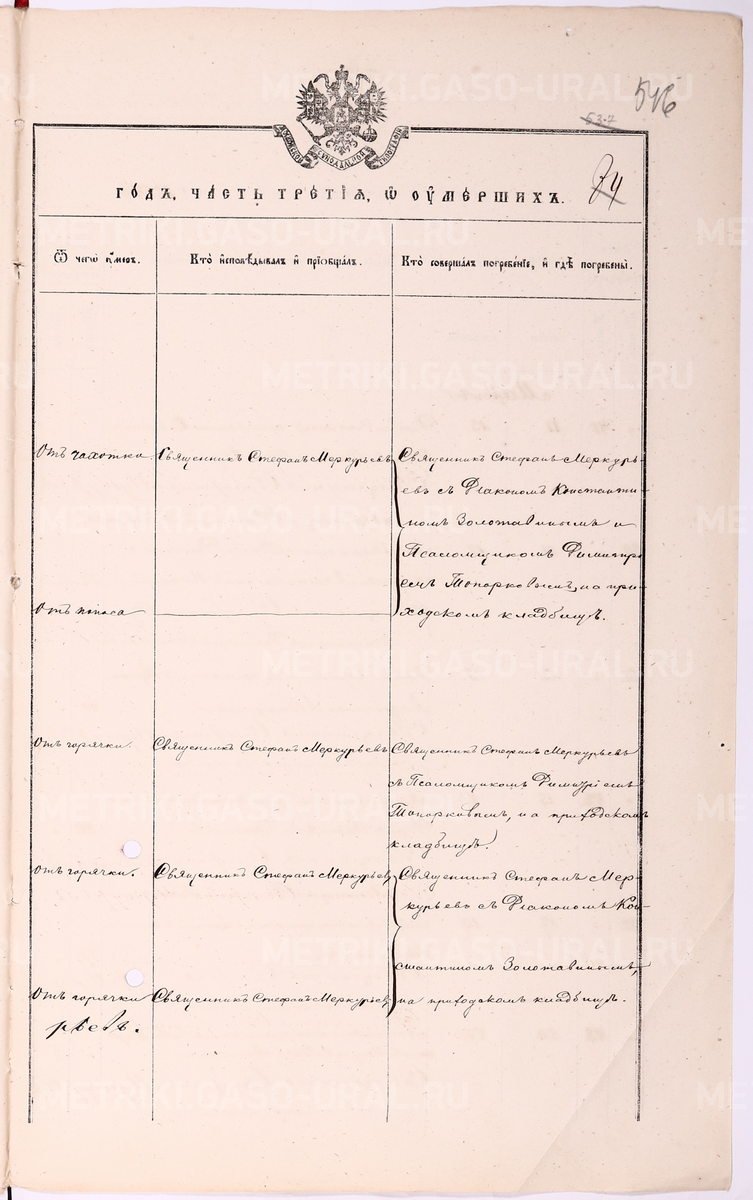 546
537
74
СѴНОДАЛЬНОЙ
ГО́ДЪ, ЧА́СТЬ ТРЕ́ТІѦ, Ѡ҆ ОУ҆МЕ́РШИХЪ.
Ѿ чегѡ̀ ѹ҆́меръ.
Кто̀ и҆сповѣ́дывалъ и҆ прїѡбща́лъ.
Кто̀ соверша́лъ погребе́нїе, и҆ гдѣ̀ погребены̀.
Отъ чахотки. Священникъ Стефанъ Меркурьевъ
Священникъ Стефанъ Меркурь-
евъ съ Діакономъ Константи-
номъ Золотавинымъ и
Псаломщикомъ Димитрі-
емъ Топорковымъ, на при-
Отъ поноса
ходскомъ кладбищѣ.
Отъ горячки. Священникъ Стефанъ Меркурьевъ
Священникъ Стефанъ Меркурьевъ
съ Псаломщикомъ Димитріемъ
Топорковымъ, на приходскомъ
кладбищѣ.
Отъ горячки. Священникъ Стефанъ Меркурьевъ
Священникъ Стефанъ Мер-
курьевъ съ Діакономъ Кон-
стантиномъ Золотавинымъ,
Отъ горячки Священникъ Стефанъ Меркурьевъ
на приходскомъ кладбищѣ.
METRIKI.GASO-URAL.RU